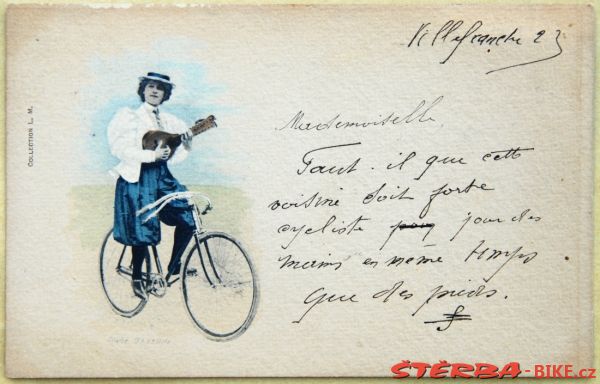 Villefranche 23
COLLECTION L. M.
Mademoiselle,
Faut-il que cette
voisine soit forte
cycliste pour jouer des
mains en même temps
que des pieds.
ŠTĚRBA-BIKE.cz